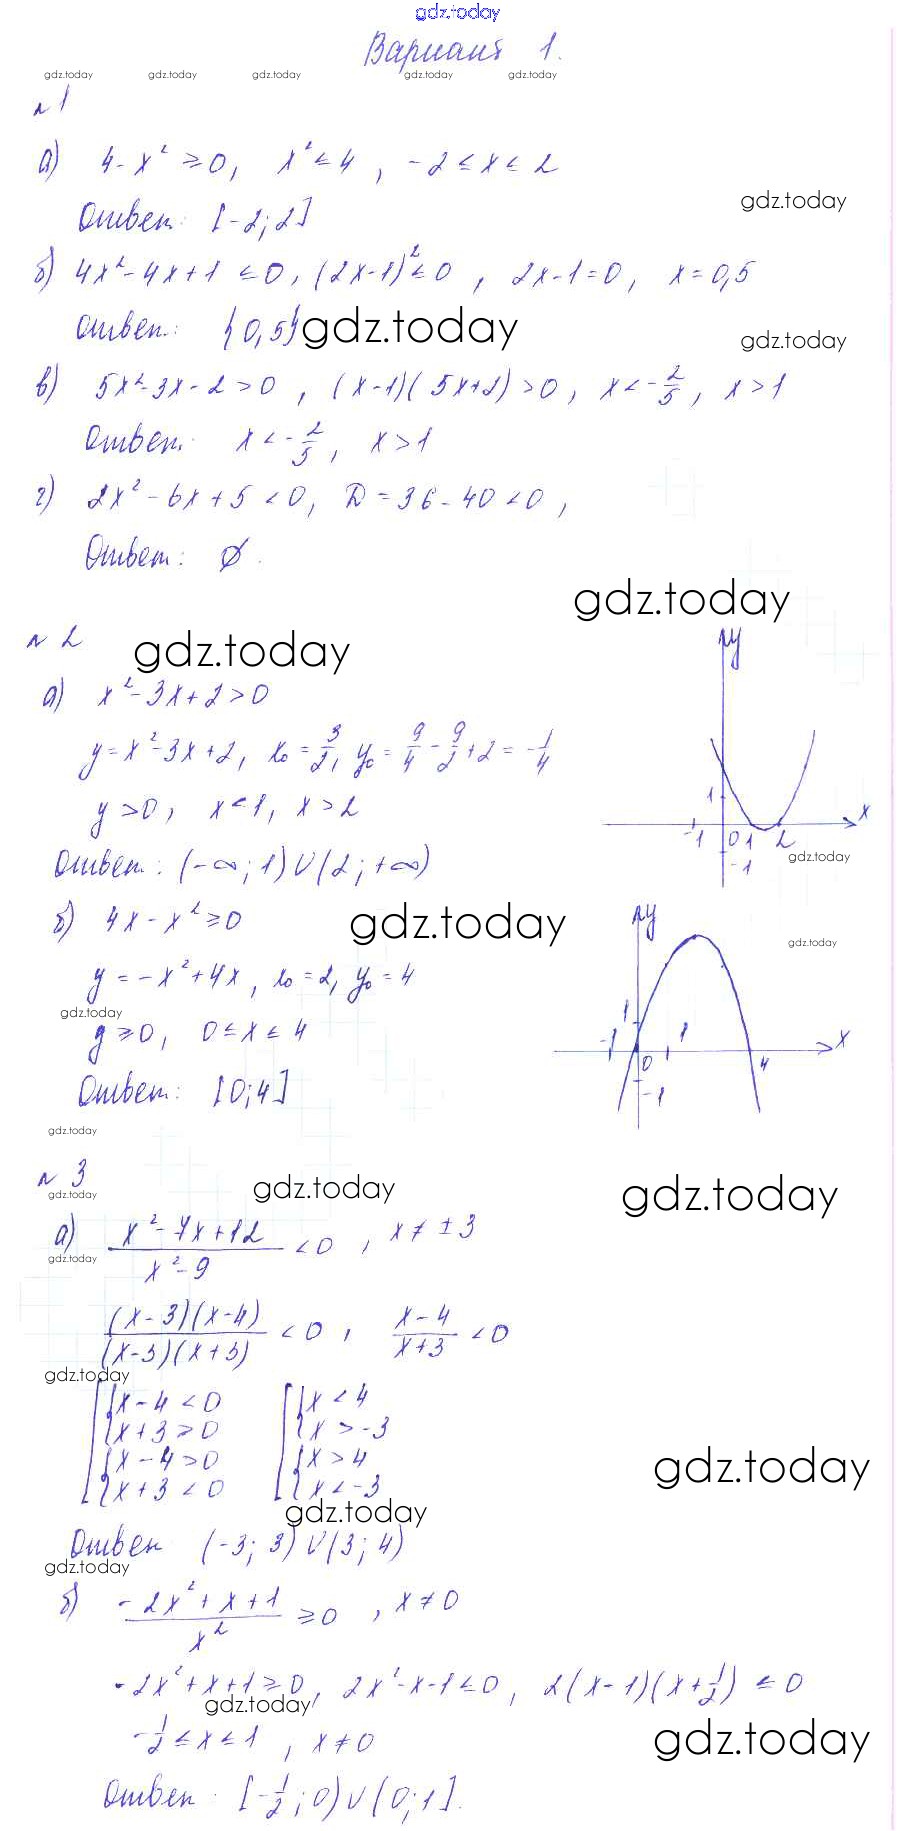 gdz.today
Вариант 1.
gdz.today gdz.today gdz.today gdz.today gdz.today
№1
а) 4-x² ≥0, x²≤4, -2≤x≤2
gdz.today
Ответ: [-2;2]
б) 4x²-4x+1 ≤0, (2x-1)²≤0, 2x-1=0, x=0,5
Ответ: {0,5}
gdz.today
gdz.today
в) 5x²-3x-2>0, (x-1)(5x+2)>0, x<-2/5, x>1
Ответ: x<-2/5, x>1
г) 2x²-6x+5<0, D=36-40<0,
Ответ: ∅.
gdz.today
№2
gdz.today
а) x²-3x+2>0
y=x²-3x+2, x₀=3/2, y₀=9/4-9/2+2=-1/4
y>0, x<1, x>2
y
1
x
-1 0 1 2
-1
gdz.today
Ответ: (-∞;1)∪(2;+∞)
б) 4x-x²≥0
gdz.today
gdz.today
y=-x²+4x, x₀=2, y₀=4
gdz.today
y≥0, 0≤x≤4
y
1
-1 1 x
0 4
-1
Ответ: [0;4]
gdz.today
№3
gdz.today
gdz.today
gdz.today
а) (x²-7x+12)/(x²-9) <0, x≠±3
gdz.today
(x-3)(x-4)/(x-3)(x+3) <0, (x-4)/(x+3) <0
gdz.today
x-4<0 x<4
x+3>0 x>-3
x-4>0 x>4
x+3<0 x<-3
gdz.today
gdz.today
Ответ (-3;3)∪(3;4)
gdz.today
б) (-2x²+x+1)/x² ≥0, x≠0
-2x²+x+1≥0, 2x²-x-1≤0, 2(x-1)(x+1/2) ≤0
gdz.today
-1/2≤x≤1, x≠0
gdz.today
Ответ: [-1/2;0)∪(0;1].